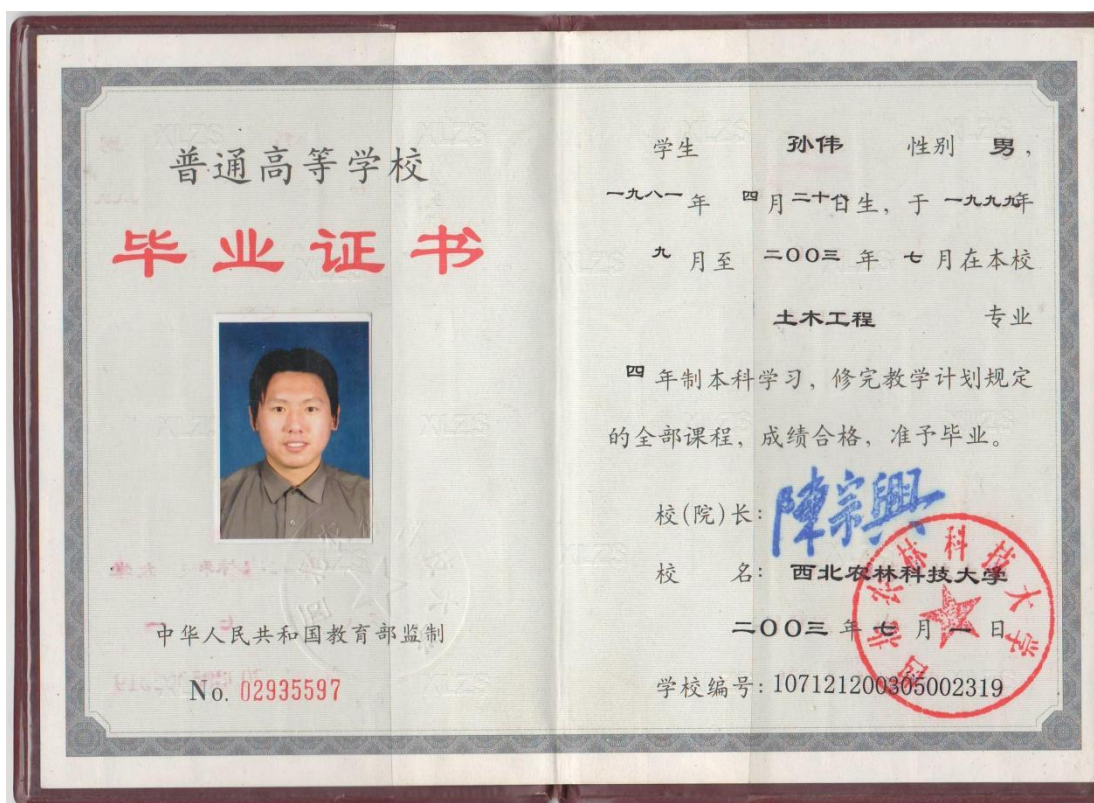 普通高等学校
毕业证书
中华人民共和国教育部监制
No. 02935597
学生 孙伟 性别 男,
一九八一年 四月二十 日生, 于 一九九九年
九 月至 二〇〇三 年 七 月在本校
土木工程 专业
四 年制本科学习, 修完教学计划规定
的全部课程, 成绩合格, 准予毕业。
校(院)长: 陳宗興
校 名: 西北农林科技大学
二〇〇三 年 七 月 一 日
学校编号: 107121200305002319
西北农林科技大学